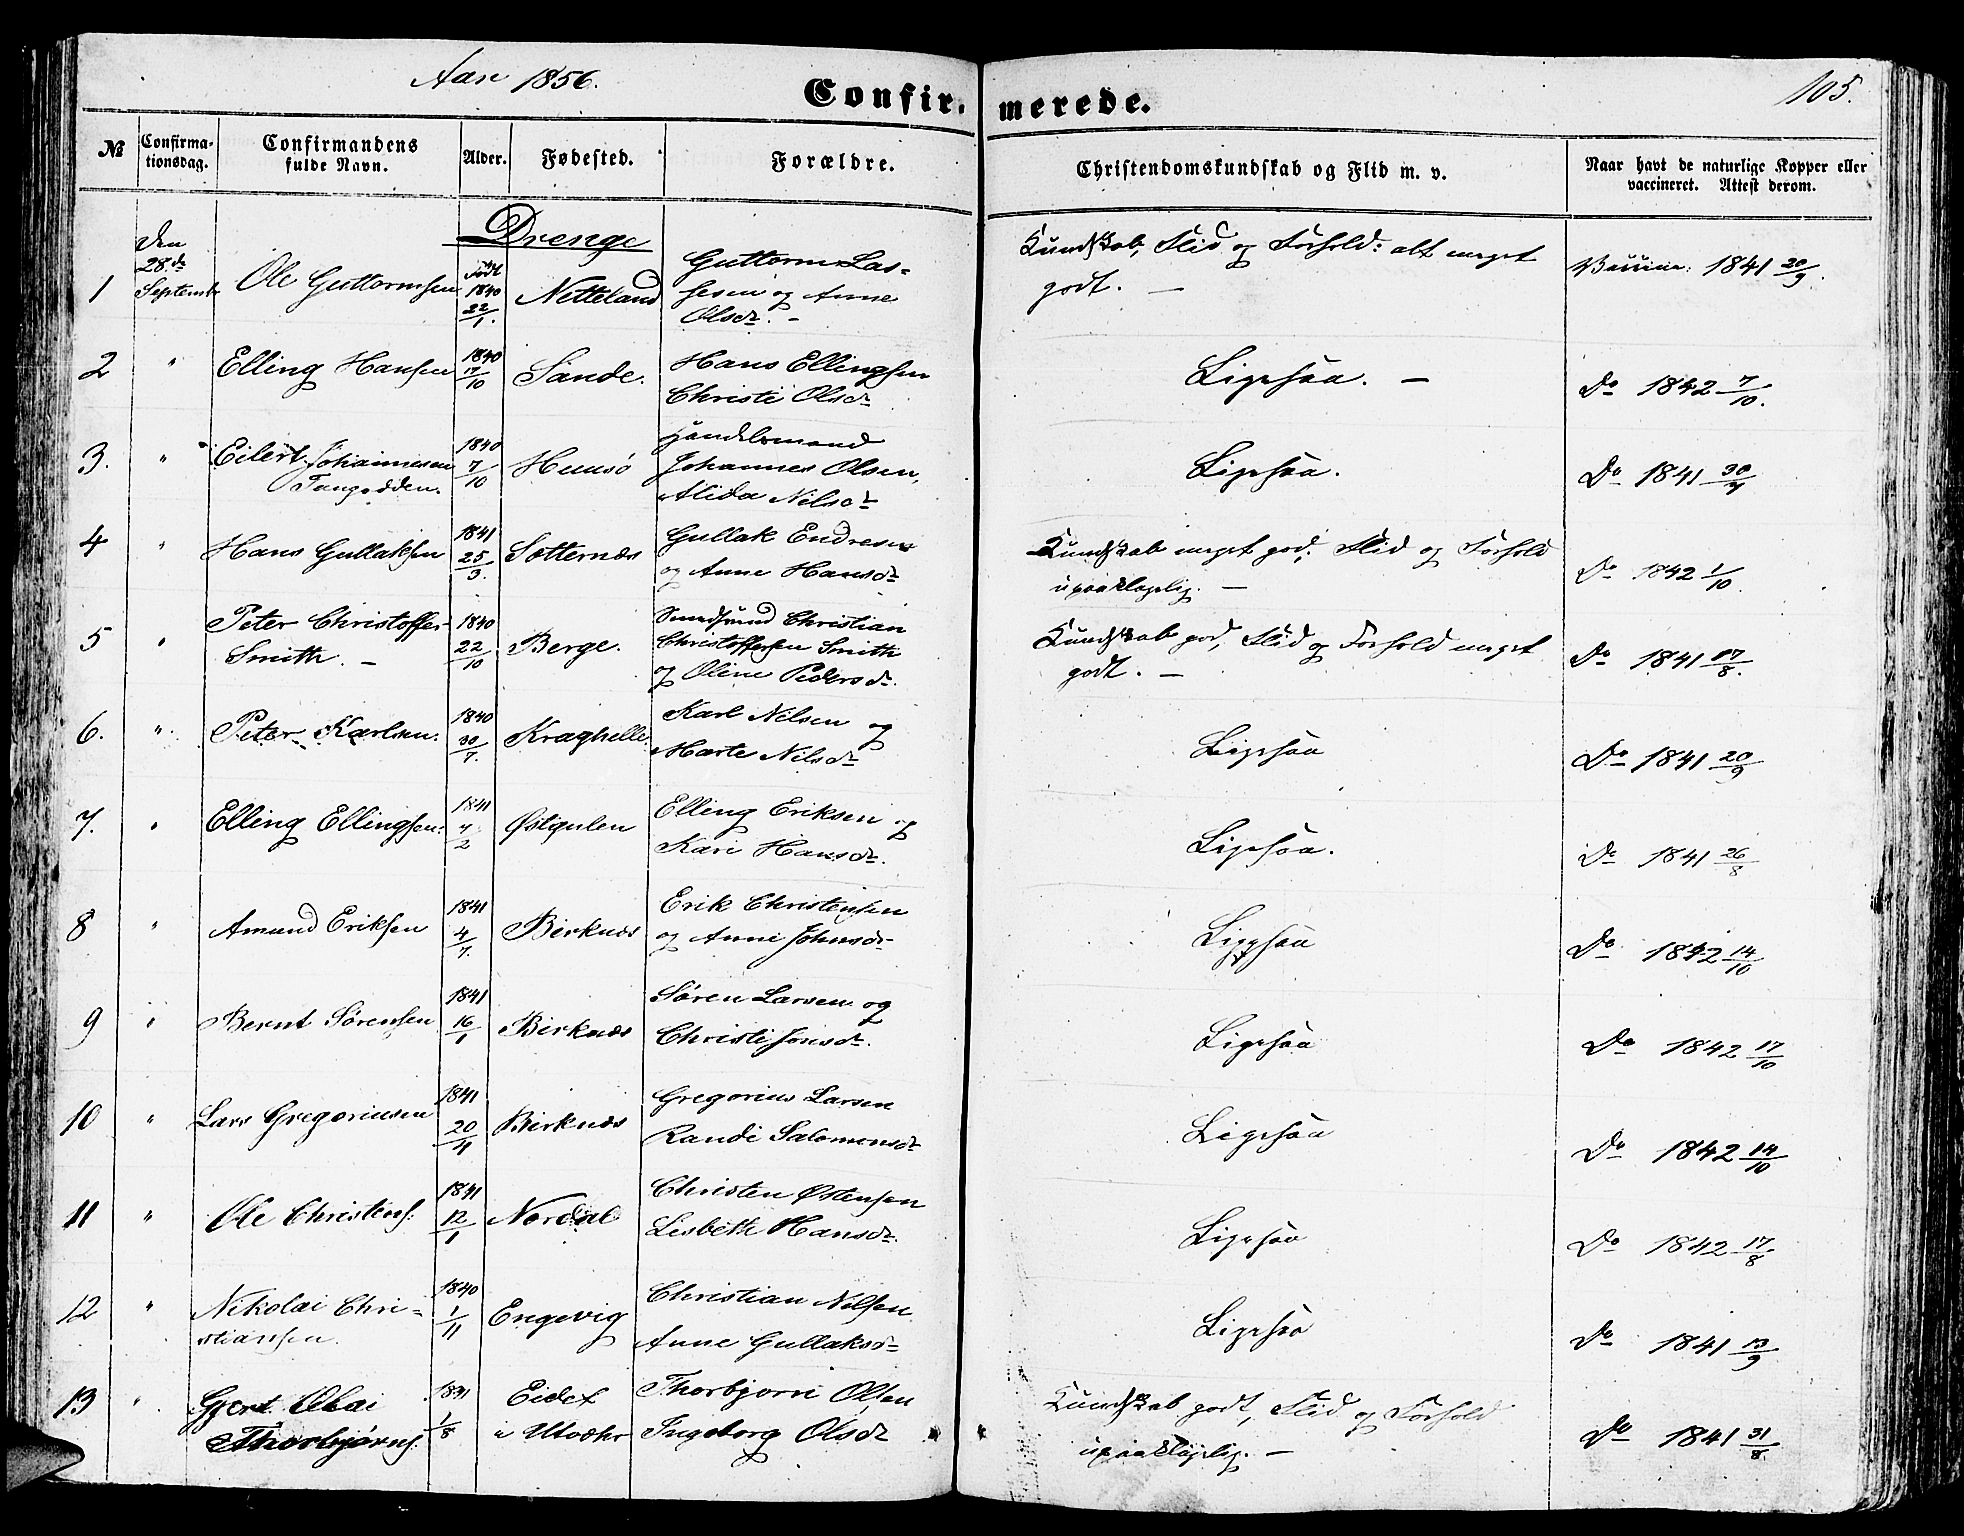 Aar 1856.
105.
Confirmerede.
№
Confirma-
tionsdag.
Confirmandens
fulde Navn.
Alder.
Fødested.
Forældre.
Christendomskundskab og Flid m. v.
Naar havt de naturlige Kopper eller
vaccineret. Attest derom.
Drenge
1 Den 28de Septembr Ole Guttormsen Født 1840 22/1. Netteland Guttorm Las-
sesen og Anne
Olsdr. -
Kundskab, Flid og Forhold: alt meget
godt. —
Vaccin: 1841 20/9.
2 " Elling Hansen 1840 17/10 Sande. Hans Ellingsen
Christi Olsdr
Ligesaa. —
Do 1842 7/10.
3. " Eilert Johannesen
Tangodden.
1840 7/10 Huusø Handelsmand
Johannes Olsen,
Alida Nilsdr
Ligesaa.
Do 1841 30/7
4 " Hans Gullaksen 1841 25/3. Sætternæs Gullak Endresen
og Anne Hansdr
Kundskab meget god; Flid og Forhold
upaaklagelig. —
Do 1842 1/10.
5 " Peter Christoffer
Smith. —
1840 22/10 Berge. Christian
Christoffersen Smith
og Oline Pedersdr.
Kundskab god, Flid og Forhold meget
godt. —
Do 1841 17/8.
6. " Peter Karlsen. 1840 30/7. Kraghelle Karl Nilsen og
Marte Nilsdr
Ligesaa
Do 1841 20/9
7. " Elling Ellingsen. 1841 4/2 Østgulen Elling Eriksen og
Kari Hansdr.
Ligesaa.
Do 1841 26/8
8 " Amund Eriksen 1841 4/7. Birknæs Erik Christensen
og Anne Johnsdr
Ligesaa
Do 1842 14/10
9 " Bernt Sørensen 1841 16/1 Birknæs Søren Larsen og
Christi Jonsdr.
Ligesaa
Do 1842 17/10
10 " Lars Gregoriusen 1841 20/4 Birknæs Gregorius Larsen
Randi Salomonsdr
Ligesaa
Do 1842 14/10
11 " Ole Christens: 1841 12/1 Nordal Christen Østensen
Lisbeth Hansdr.
Ligesaa
Do 1842 17/8
12 " Nikolai Chri-
stiansen.
1840 1/11 Engevig Christian Nilsen
Anne Gullaksdr
Ligesaa
Do 1841 13/9
13 " Gjert Olai
Thorbjørns.
1841 1/8 Eidet
i Utvær
Thorbjørn Olsen
Ingeborg Olsdr
Kundskab godt, Flid og Forhold
upaaklagelig. —
Do 1841 31/8.